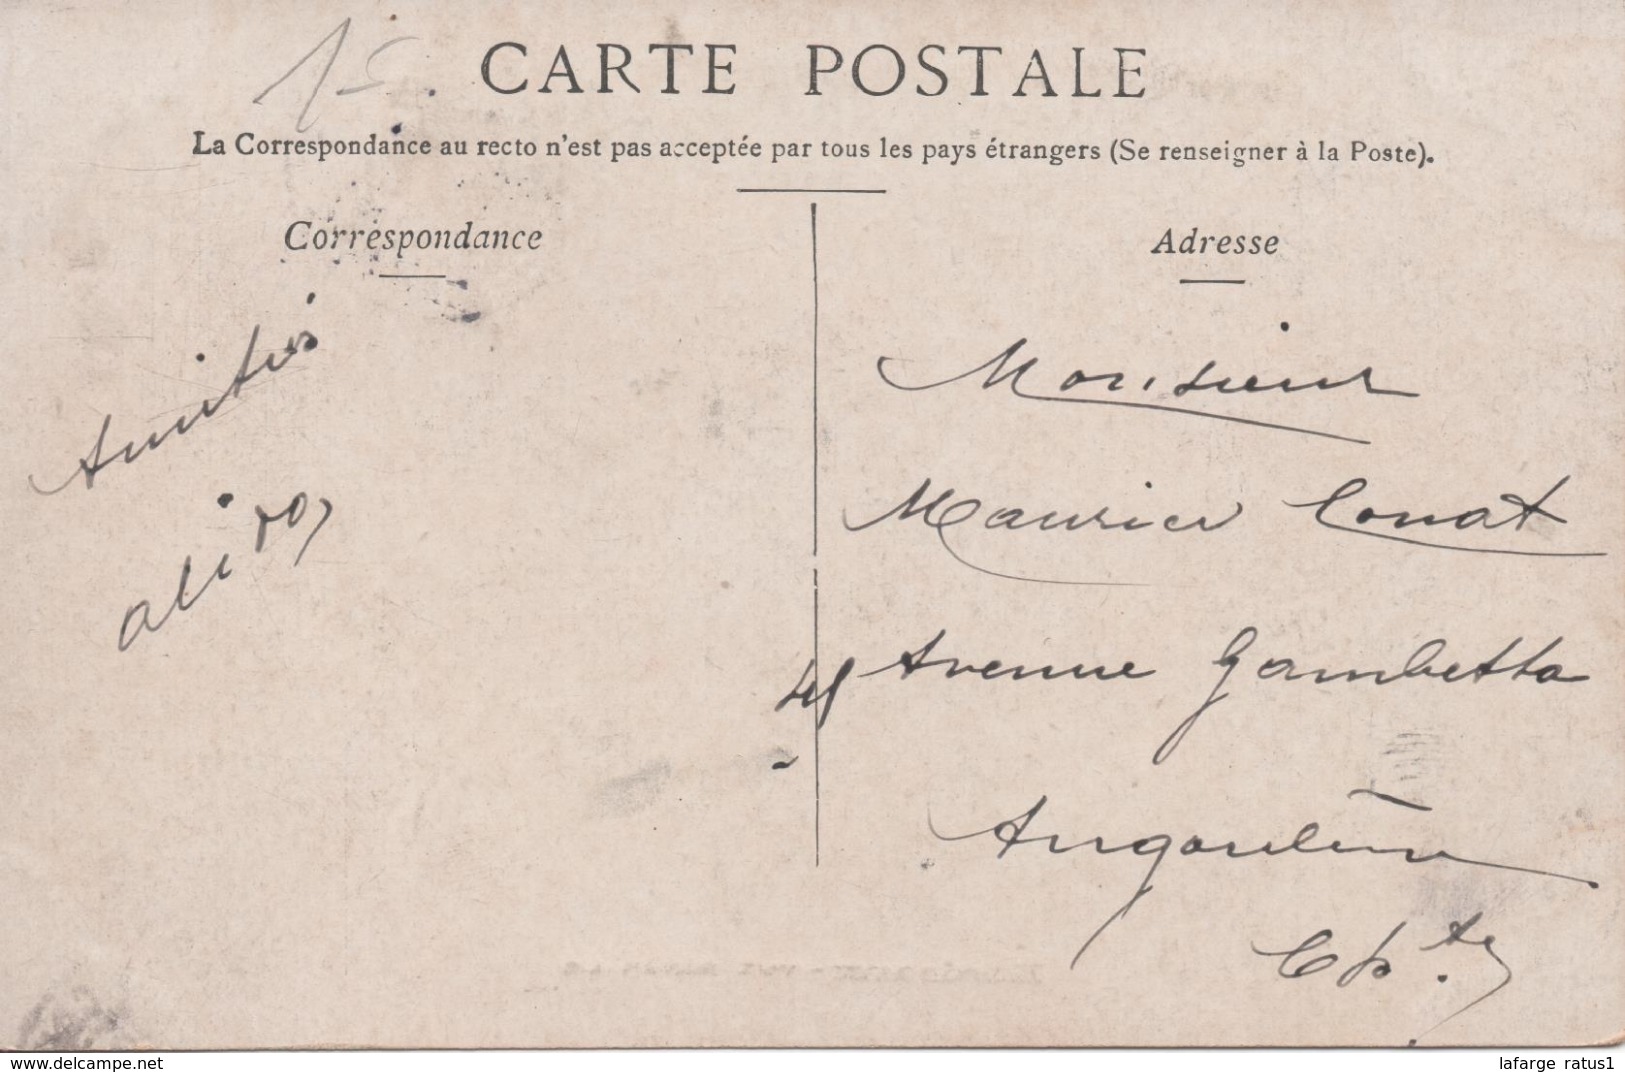 15.
CARTE POSTALE
La Correspondance au recto n'est pas acceptée par tous les pays étrangers (Se renseigner à la Poste).
Correspondance
Amitiés
Adresse
Monsieur
Maurice Conat
Avenue Gambetta
Angoulême
Ch.te
www.delcampe.net
lafarge_ratus1